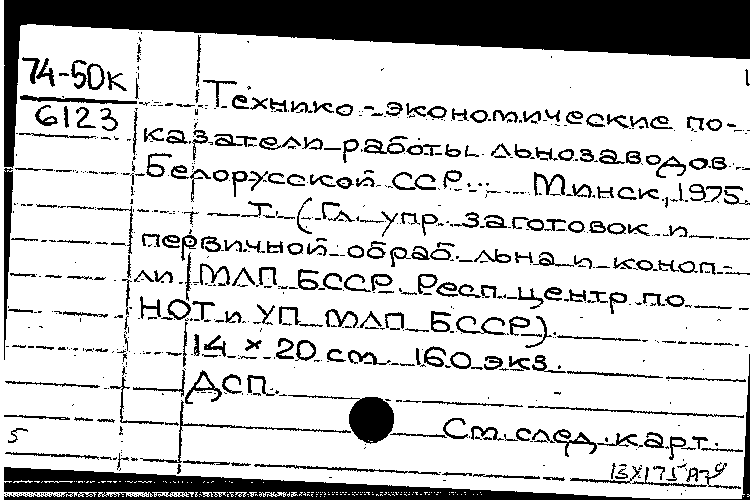 1
74-50к
6123
Технико-экономические по-
казатели работы льнозаводов
Белорусской ССР... Минск, 1975.
т. (Гл. упр. заготовок и
первичной обраб. льна и коноп-
ли МЛП БССР. Респ. центр по
НОТ и УП МЛП БССР).
14 × 20 см. 160 экз.
ДСП.
См. след. карт.
5